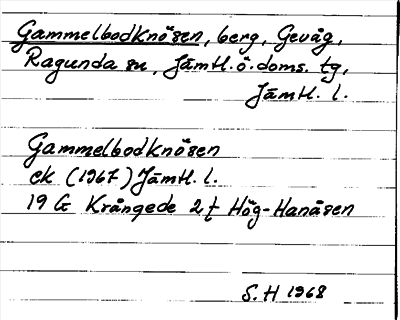 Gammelbodknösen, berg, Geväg,
Ragunda sn, Jämtl. ö. doms. tg,
Jämtl. l.
Gammelbodknösen
ek (1967) Jämtl. l.
19 G Krångede 2 f Hög-Hanåsen
S. H 1968